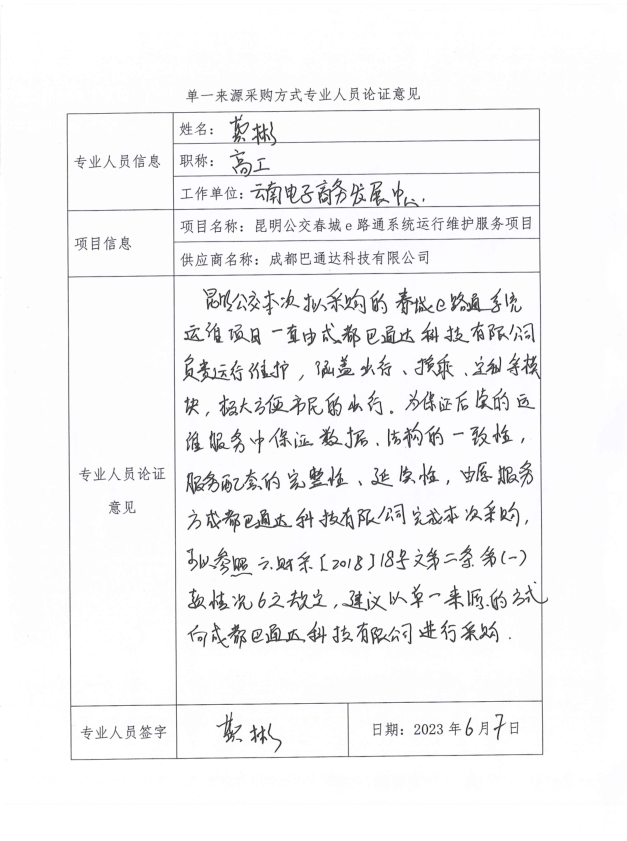 单一来源采购方式专业人员论证意见
专业人员信息
姓名：彬
职称：高工
工作单位：云南电子商务发展中心.
项目信息
项目名称：昆明公交春城e路通系统运行维护服务项目
供应商名称：成都巴通达科技有限公司
专业人员论证意见
昆明公交本次拟采购的春城e路通系统
运维项目一直由成都巴通达科技有限公司
负责运行维护，涵盖出行、换乘、定制等模
块，极大方便市民的出行。为保证后续的运
维服务中保证数据、结构的一致性，
服务配套的完整性、延续性，由原服务
方成都巴通达科技有限公司完成本次采购，
可以参照云财采［2018］18号文第二条第（一）
款情况6之规定，建议以单一来源的方式
向成都巴通达科技有限公司进行采购.
专业人员签字
彬
日期：2023年6月7日